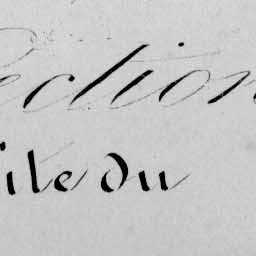 ection
ile du